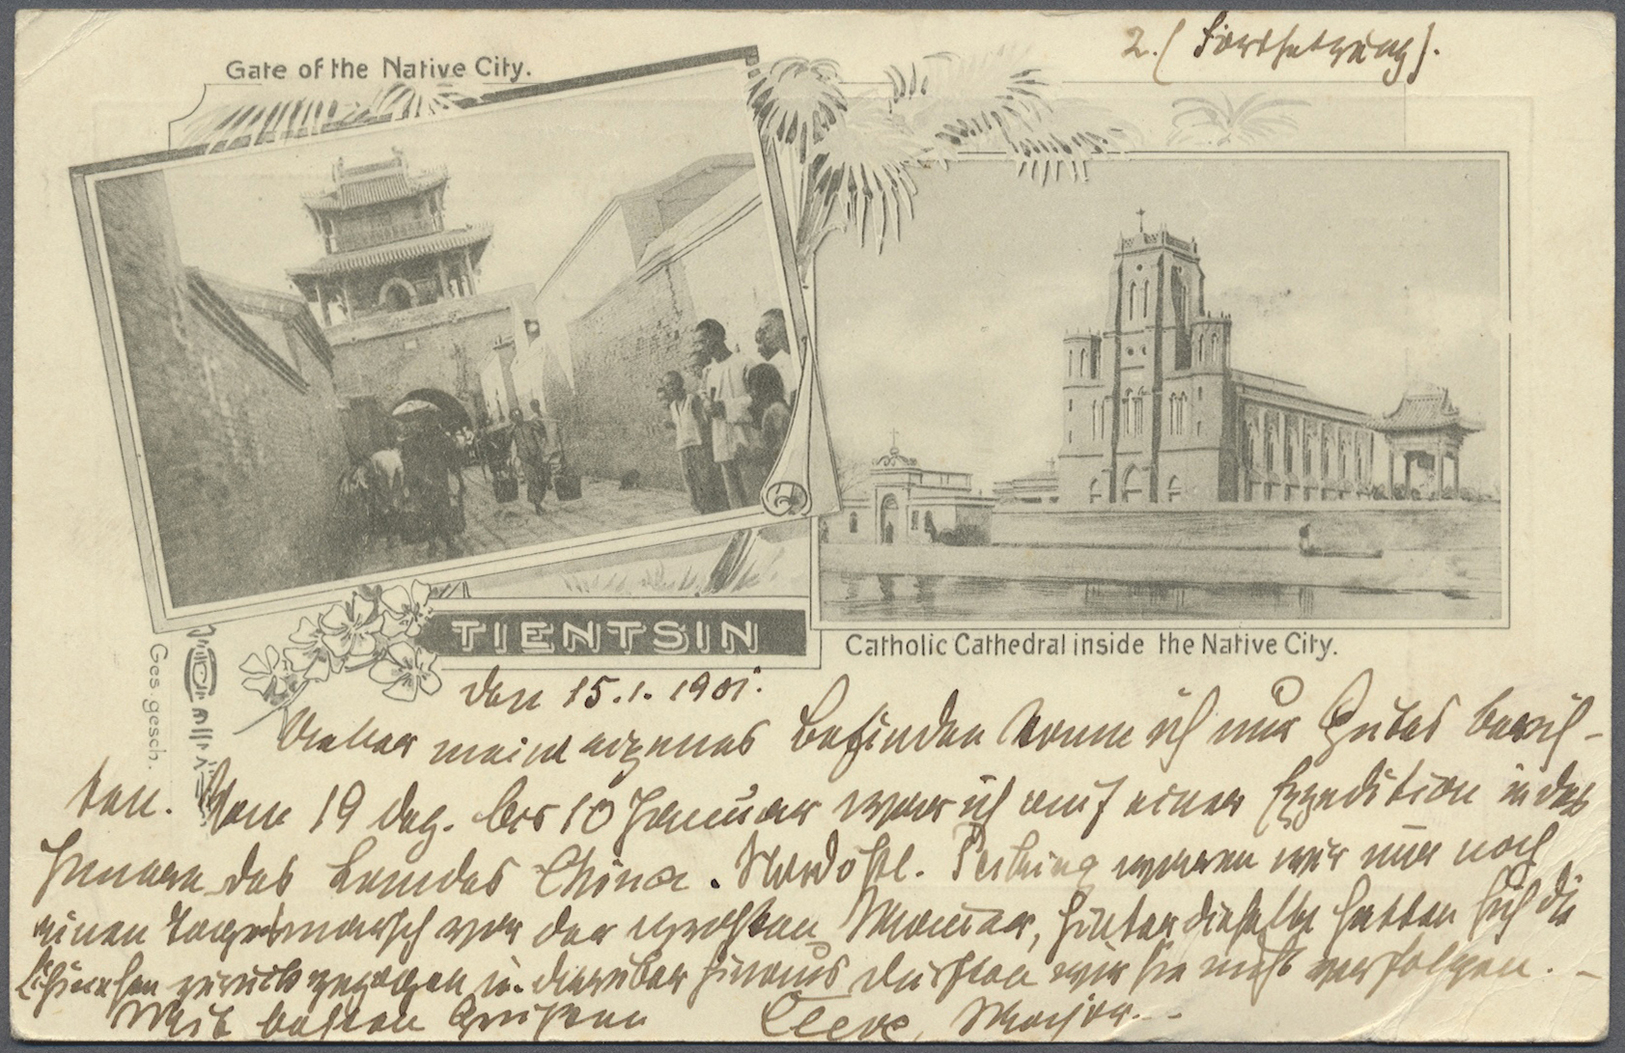 2. (Fortsetzung).
Gate of the Native City.
TIENTSIN
Catholic Cathedral inside the Native City.
Ges. gesch.
den 15.1.1901.
Ueber mein eigenes Befinden kann ich nur Gutes berich-
ten. Vom 19 Dez. bis 10 Januar war ich auf einer Expedition in das
Innere des Landes China. Nordöstl. Peking waren wir nur noch
einen Tagesmarsch von der großen Mauer, hinter dieselbe hatten sich die
Chinesen zurückgezogen u. darüber hinaus durften wir sie nicht verfolgen. –
Mit besten Grüßen Major.